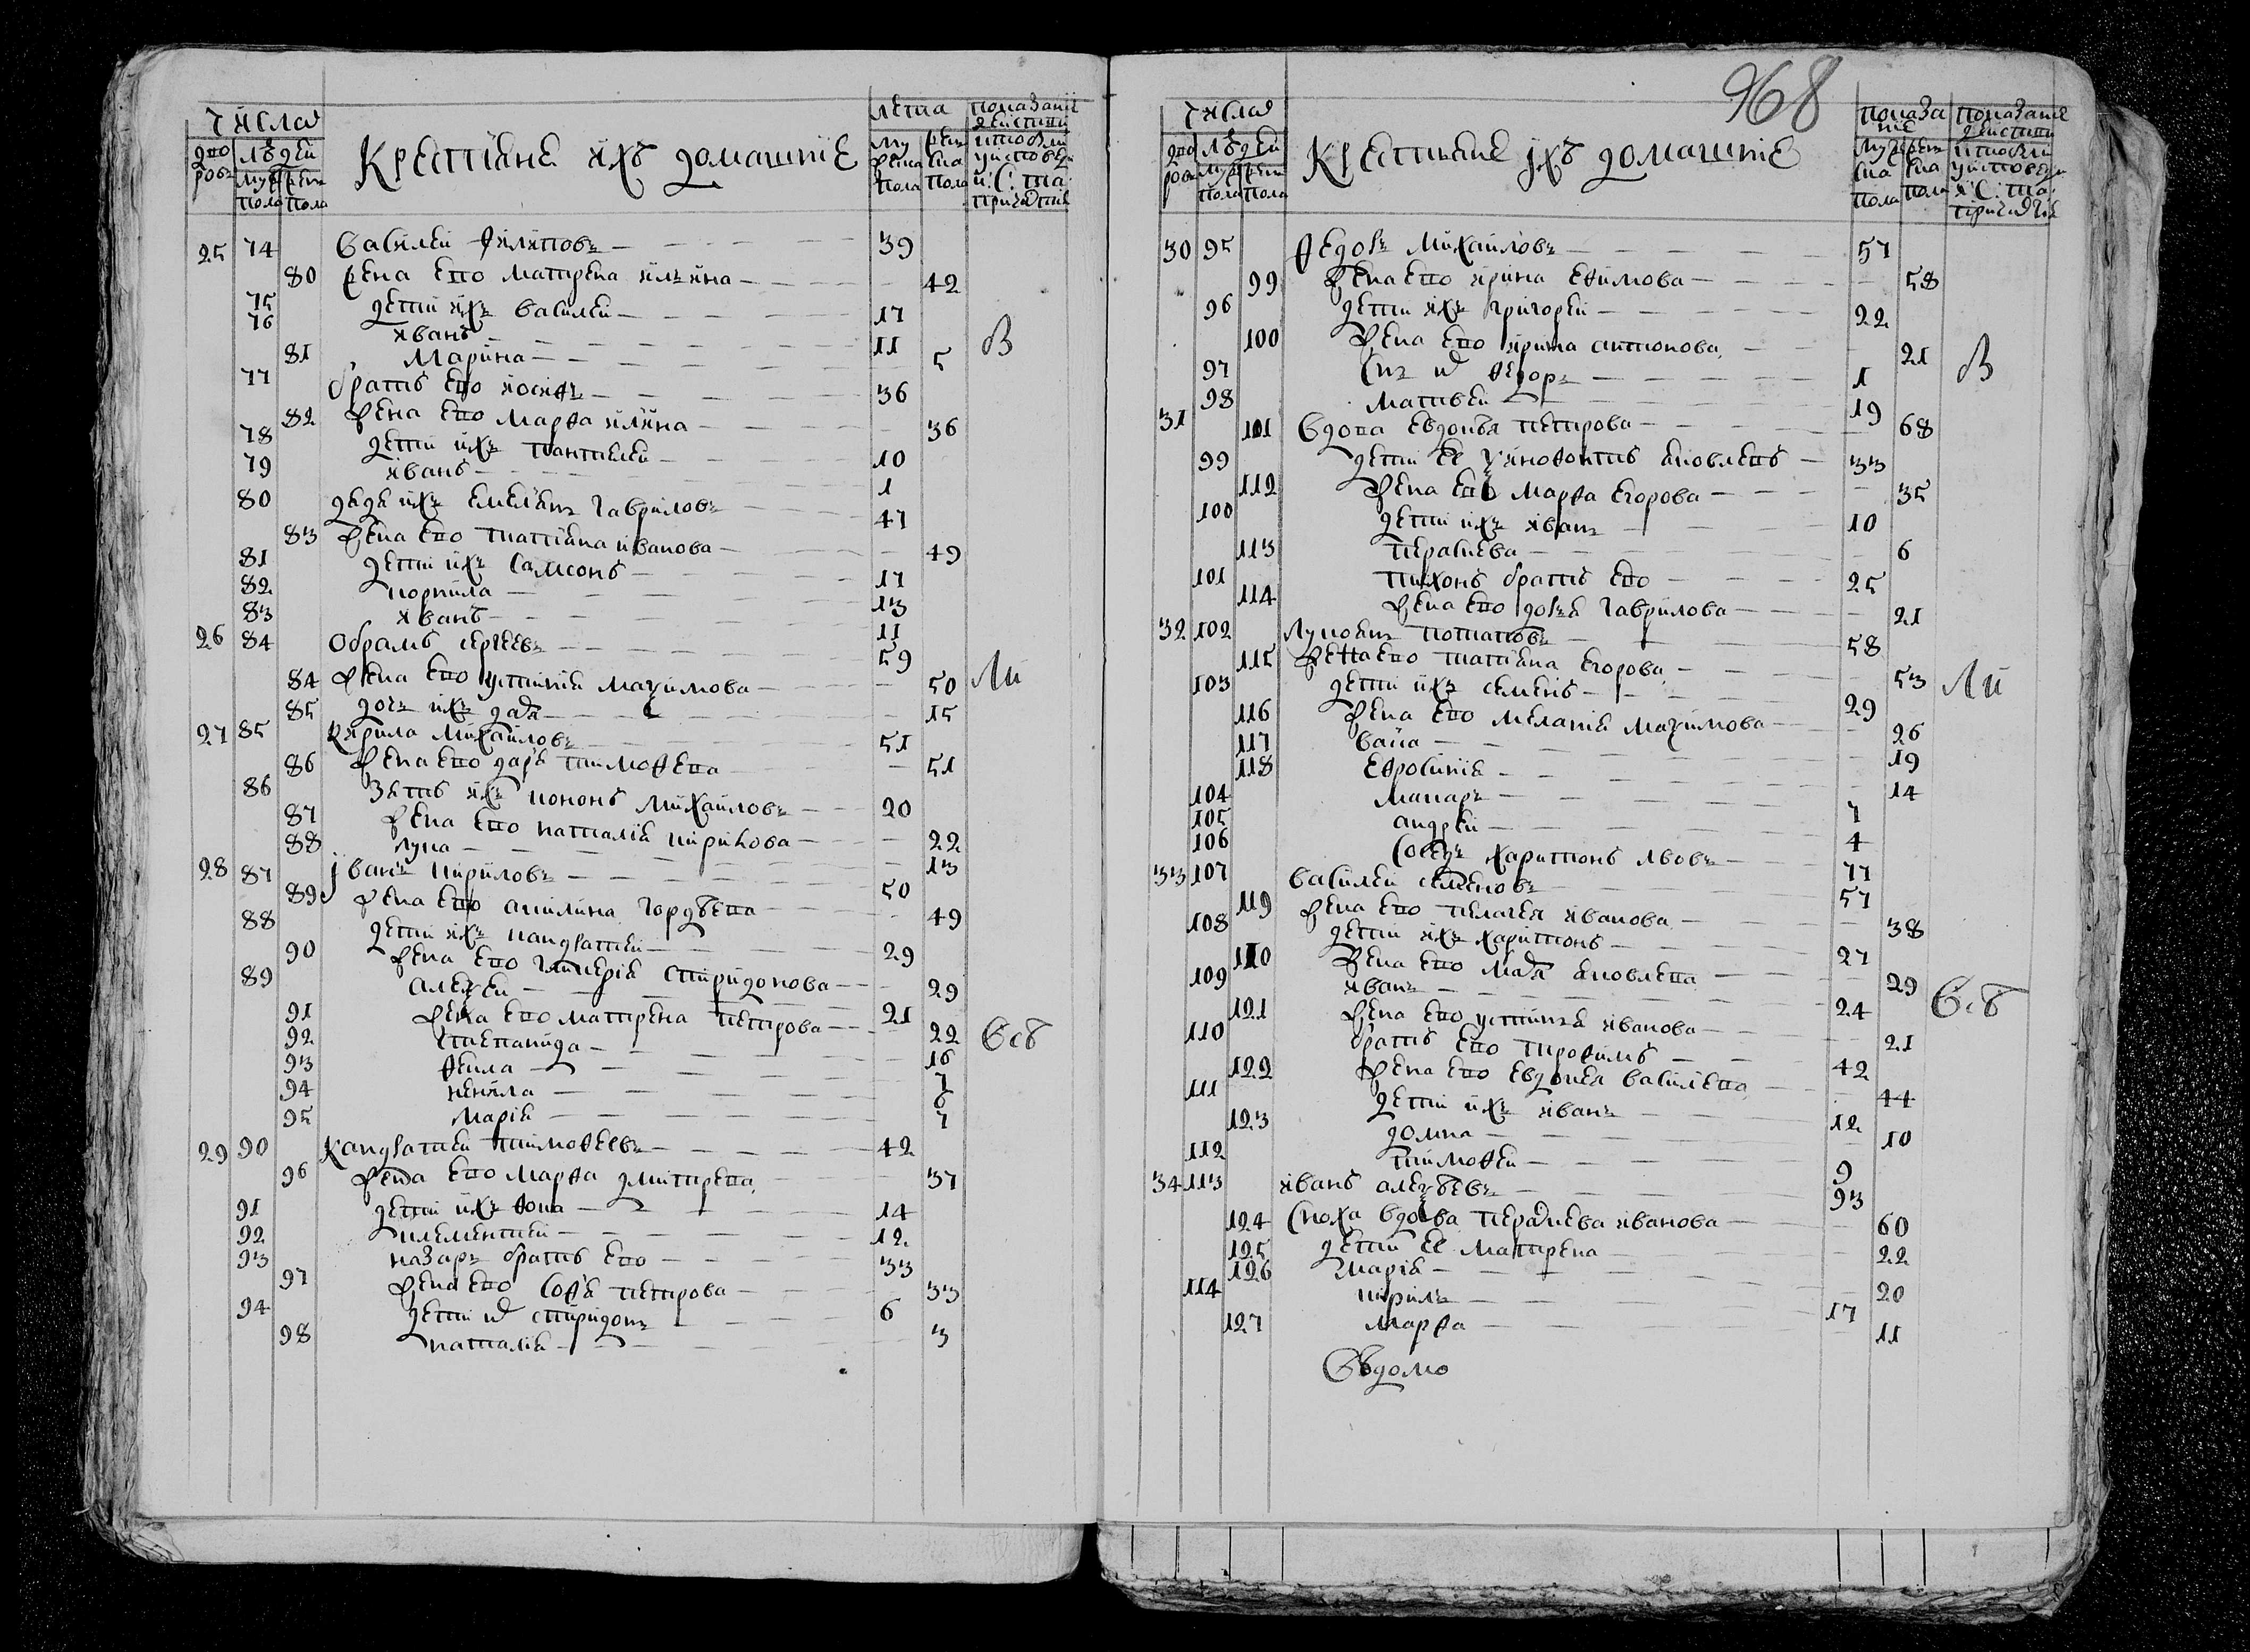 числа
дво ровъ
людей
муж пола
жен пола
Крестiяне ихъ домашнiе
лета
му жска пола
жен ска пола
показанiе действи
25 74 Василей Филиповъ 39
80 жена ево матрена илъина 42
75 дети ихъ василей 17
76 иванъ 11 В
81 Марина 5
77 братъ ево иосифъ 36
82 жена ево марфа илина 36
78 дети ихъ пантилей 10
79 иванъ 1
80 дядя ихъ емелянъ гавриловъ 47
83 жена ево татiяна иванова 49
81 дети ихъ самсонъ 17
82 корнила 13
83 иванъ 11
26 84 Обрамъ сергеевъ 59
84 жена ево устинiя маѯимова 50 Ли
85 дочь ихъ 15
27 85 Кирила михаиловъ 51
86 жена ево даря тимофева 51
86 зять ихъ кононъ михайловъ 20
87 жена ево наталiя кирилова 22
88 лука 13
28 87 Iванъ кириловъ 50
89 жена ево акилина гордѣева 49
88 дети ихъ кандратей 29
90 жена ево гликерiя спиридонова 29
89 алеѯей 21
91 жена ево матрена петрова 22
92 степанида 16 Всѣ
93 фекла 7
94 ненила
95 марiя 7
29 90 Кандратей тимофеевъ 42
96 жена ево марфа дмитрева 37
91 дети ихъ фока 14
92 клементей 12
93 назаръ братъ ево 33
97 жена ево софя петрова 33
94 дети их спиридонъ 6
98 наталiя 3
968
числа
дво ровъ
людей
муж пола
жен пола
Крестьяне ихъ домашнiе
показа нiе
муж ска пола
жен ска пола
показанiе действи
30 95 Федоръ михайловъ 57
99 жена ево ирина ефимова 58
96 дети ихъ григорей 22
100 жена ево ирина антонова 21 В
97 снъ их федоръ 1
98 матвей 19
31 101 Вдова евдокѣя петрова 68
99 дети ее ѯинофонтъ яковлевъ 33
112 жена ево марфа егорова 35
100 дети ихъ иванъ 10
113 праскева 6
101 тихонъ братъ ево 25
114 жена ево гаврилова 21
32 102 Лукоянъ потаповъ 58
115 жена ево татiяна егорова 53 Ли
103 дети ихъ семенъ 29
116 жена ево меланiя маѯимова 26
117 васа 19
118 ефросинiя 14
104 макаръ 7
105 андрей 4
106 харитонъ львовъ 77
33 107 Василей семеновъ 57
119 жена ево пелагея иванова 38
108 дети ихъ харитонъ 27
110 жена ево яковлева 29
109 иванъ 24 Всѣ
121 жена ево устинiя иванова 21
110 братъ ево трофимъ 42
122 жена ево евдокея василева 44
111 дети ихъ иванъ 12
123 домна 10
112 тимофей 9
34 113 иванъ алеѯѣевъ 93
124 сноха вдова праскева иванова 60
125 дети ее матрена 22
126 марiя 20
114 кирилъ 17
127 марфа 11
Вѣдомо